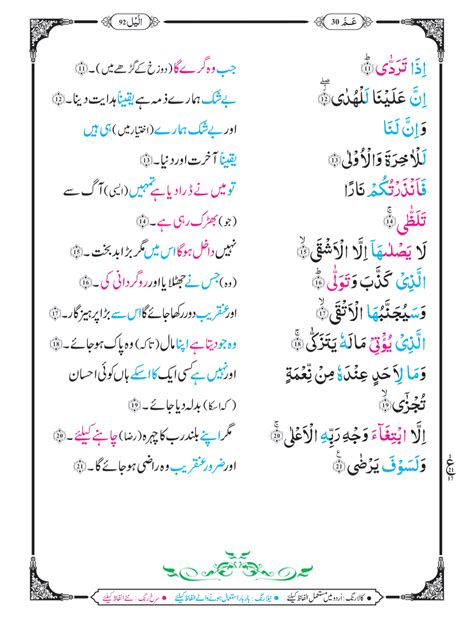 الّيل 92
عَـمّ 30
اِذَا تَرَدّٰى ۞۱۱ جب وہ گرے گا (دوزخ کے گڑھے میں)۔ ۞۱۱
اِنَّ عَلَيْنَا لَلْهُدٰى ۞۱۲ بے شک ہمارے ذمہ ہے یقیناً ہدایت دینا۔ ۞۱۲
وَاِنَّ لَنَا اور بے شک ہمارے (اختیار میں) ہی ہیں
لَلْاٰخِرَةَ وَالْاُوْلٰى ۞۱۳ یقیناً آخرت اور دنیا۔ ۞۱۳
فَاَنْذَرْتُكُمْ نَارًا تو میں نے ڈرا دیا ہے تمہیں (ایسی) آگ سے
تَلَظّٰى ۞۱۴ (جو) بھڑک رہی ہے۔ ۞۱۴
لَا يَصْلٰىهَاۤ اِلَّا الْاَشْقَى ۞۱۵ نہیں داخل ہوگا اس میں مگر بڑا بدبخت۔ ۞۱۵
الَّذِىْ كَذَّبَ وَتَوَلّٰى ۞۱۶ (وہ) جس نے جھٹلایا اور روگردانی کی۔ ۞۱۶
وَسَيُجَنَّبُهَا الْاَتْقَى ۞۱۷ اور عنقریب دور رکھا جائے گا اس سے بڑا پرہیزگار۔ ۞۱۷
الَّذِىْ يُؤْتِىْ مَالَهٗ يَتَزَكّٰى ۞۱۸ وہ جو دیتا ہے اپنا مال (تاکہ) وہ پاک ہو جائے۔ ۞۱۸
وَمَا لِاَحَدٍ عِنْدَهٗ مِنْ نِّعْمَةٍ اور نہیں ہے کسی ایک کا اسکے ہاں کوئی احسان
تُجْزٰٓى ۞۱۹ (کہ اسکا) بدلہ دیا جائے۔ ۞۱۹
اِلَّا ابْتِغَآءَ وَجْهِ رَبِّهِ الْاَعْلٰى ۞20 مگر اپنے بلند رب کا چہرہ (رضا) چاہنے کیلئے۔ ۞20
وَلَسَوْفَ يَرْضٰى ۞21 اور ضرور عنقریب وہ راضی ہو جائے گا۔ ۞21
• کالا رنگ: اُردو میں مستعمل الفاظ کیلئے • نیلا رنگ: بار بار استعمال ہونے والے الفاظ کیلئے • سرخ رنگ: نئے الفاظ کیلئے